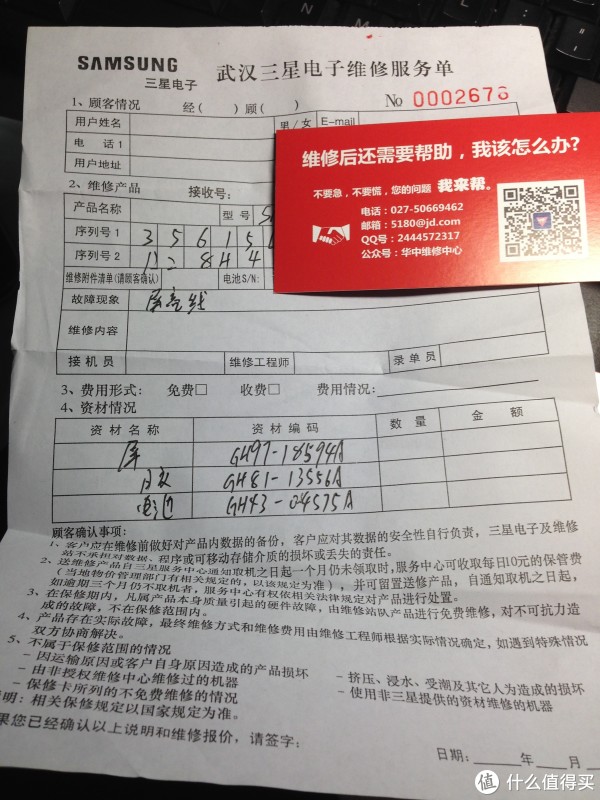 SAMSUNG
三星电子
武汉三星电子维修服务单
1、顾客情况 经( ) 顾( )
No 0002676
用户姓名 男/女 E-mail
电 话 1
用户地址
2、维修产品 接收号:
产品名称 型 号 S
序列号 1 3 5 6 1 5
序列号 2 8 H 4
维修附件清单(请顾客确认) 电池S/N:
故障现象
维修内容
接 机 员 维修工程师 录 单 员
3、费用形式: 免费□ 收费□ 费用情况:
4、资材情况
资 材 名 称 资 材 编 码 数 量 金 额
屏 GH97-18594A
GH81-13556A
电池 GH43-04575A
顾客确认事项:
1、客户应在维修前做好对产品内数据的备份，客户应对其数据的安全性自行负责，三星电子及维修
站不承担对数据、程序或可移动存储介质的损坏或丢失的责任。
2、送维修产品自三星服务中心通知取机之日起一个月仍未领取时,服务中心可收取每日10元的保管费
(当地物价管理部门有相关规定的,以该规定为准)，并可留置送修产品，自通知取机之日起,
如逾期三个月仍不取机者，服务中心有权依相关法律规定对产品进行处置。
3、在保修期内，凡属产品本身质量引起的硬件故障，由维修站队产品进行免费维修，对不可抗力造
成的故障，不在保修范围内。
4、产品存在实际故障，最终维修方式和维修费用由维修工程师根据实际情况确定，如遇到特殊情况
双方协商解决。
5、不属于保修范围的情况
- 因运输原因或客户自身原因造成的产品损坏
- 挤压、浸水、受潮及其它人为造成的损坏
- 由非授权维修中心维修过的机器
- 使用非三星提供的资材维修的机器
- 保修卡所列的不免费维修的情况
明: 相关保修规定以国家规定为准。
果您已经确认以上说明和维修报价，请签字:
日期: 年 月
维修后还需要帮助，我该怎么办?
不要急，不要慌，您的问题 我来帮。
电话：027-50669462
邮箱：5180@jd.com
QQ号：2444572317
公众号：华中维修中心
值 什么值得买